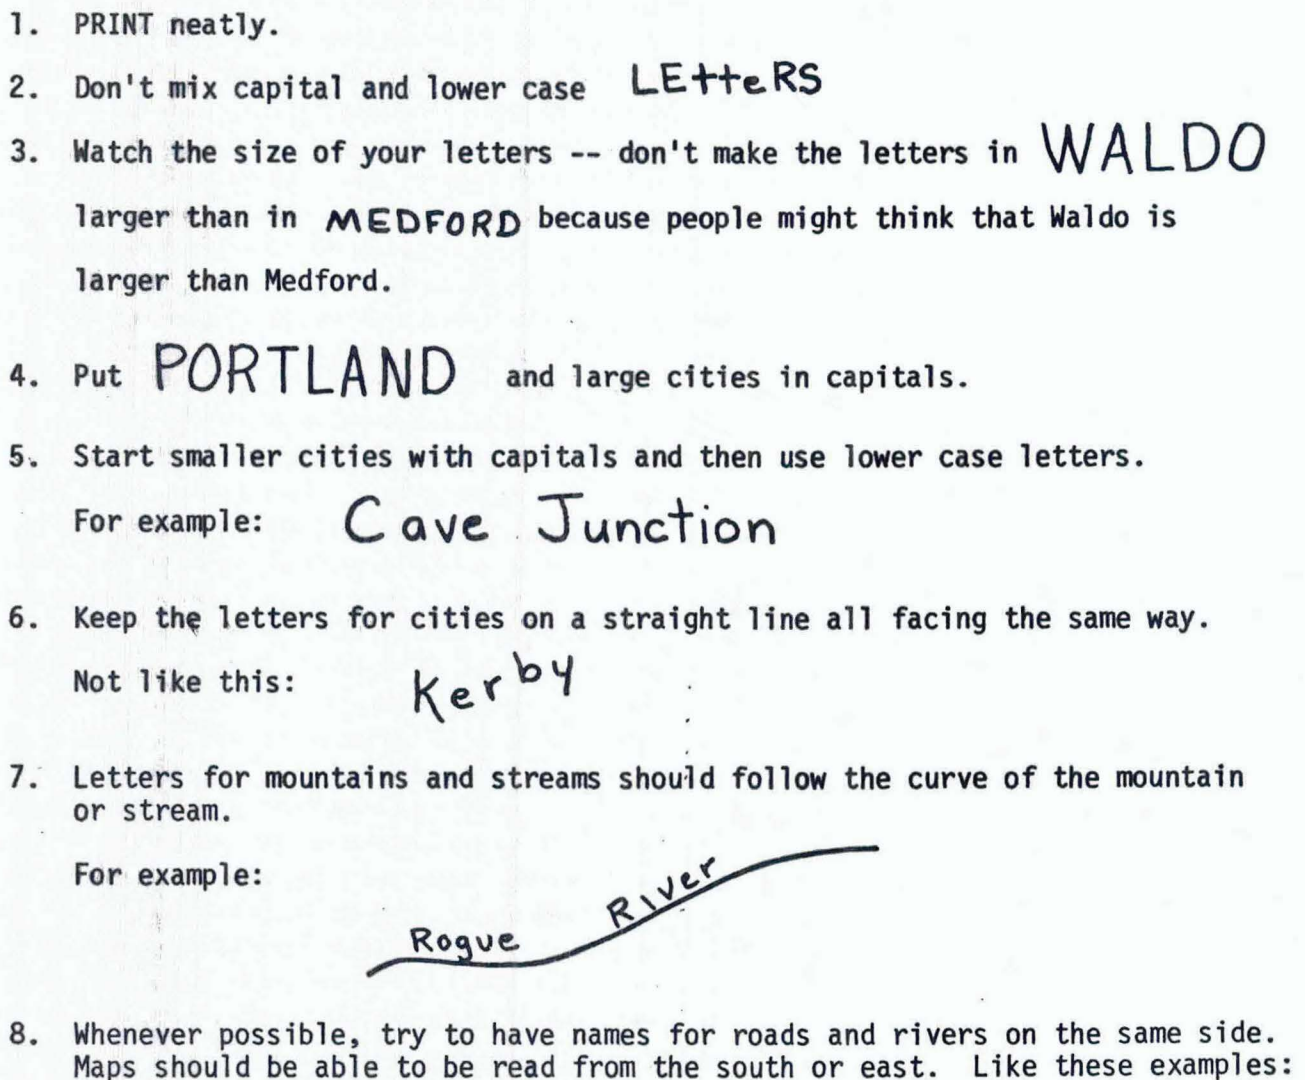 1. PRINT neatly.
2. Don't mix capital and lower case LEtteRS
3. Watch the size of your letters -- don't make the letters in WALDO
larger than in MEDFORD because people might think that Waldo is
larger than Medford.
4. Put PORTLAND and large cities in capitals.
5. Start smaller cities with capitals and then use lower case letters.
For example: Cave Junction
6. Keep the letters for cities on a straight line all facing the same way.
Not like this: Kerby
7. Letters for mountains and streams should follow the curve of the mountain
or stream.
For example:
Rogue River
8. Whenever possible, try to have names for roads and rivers on the same side.
Maps should be able to be read from the south or east. Like these examples: